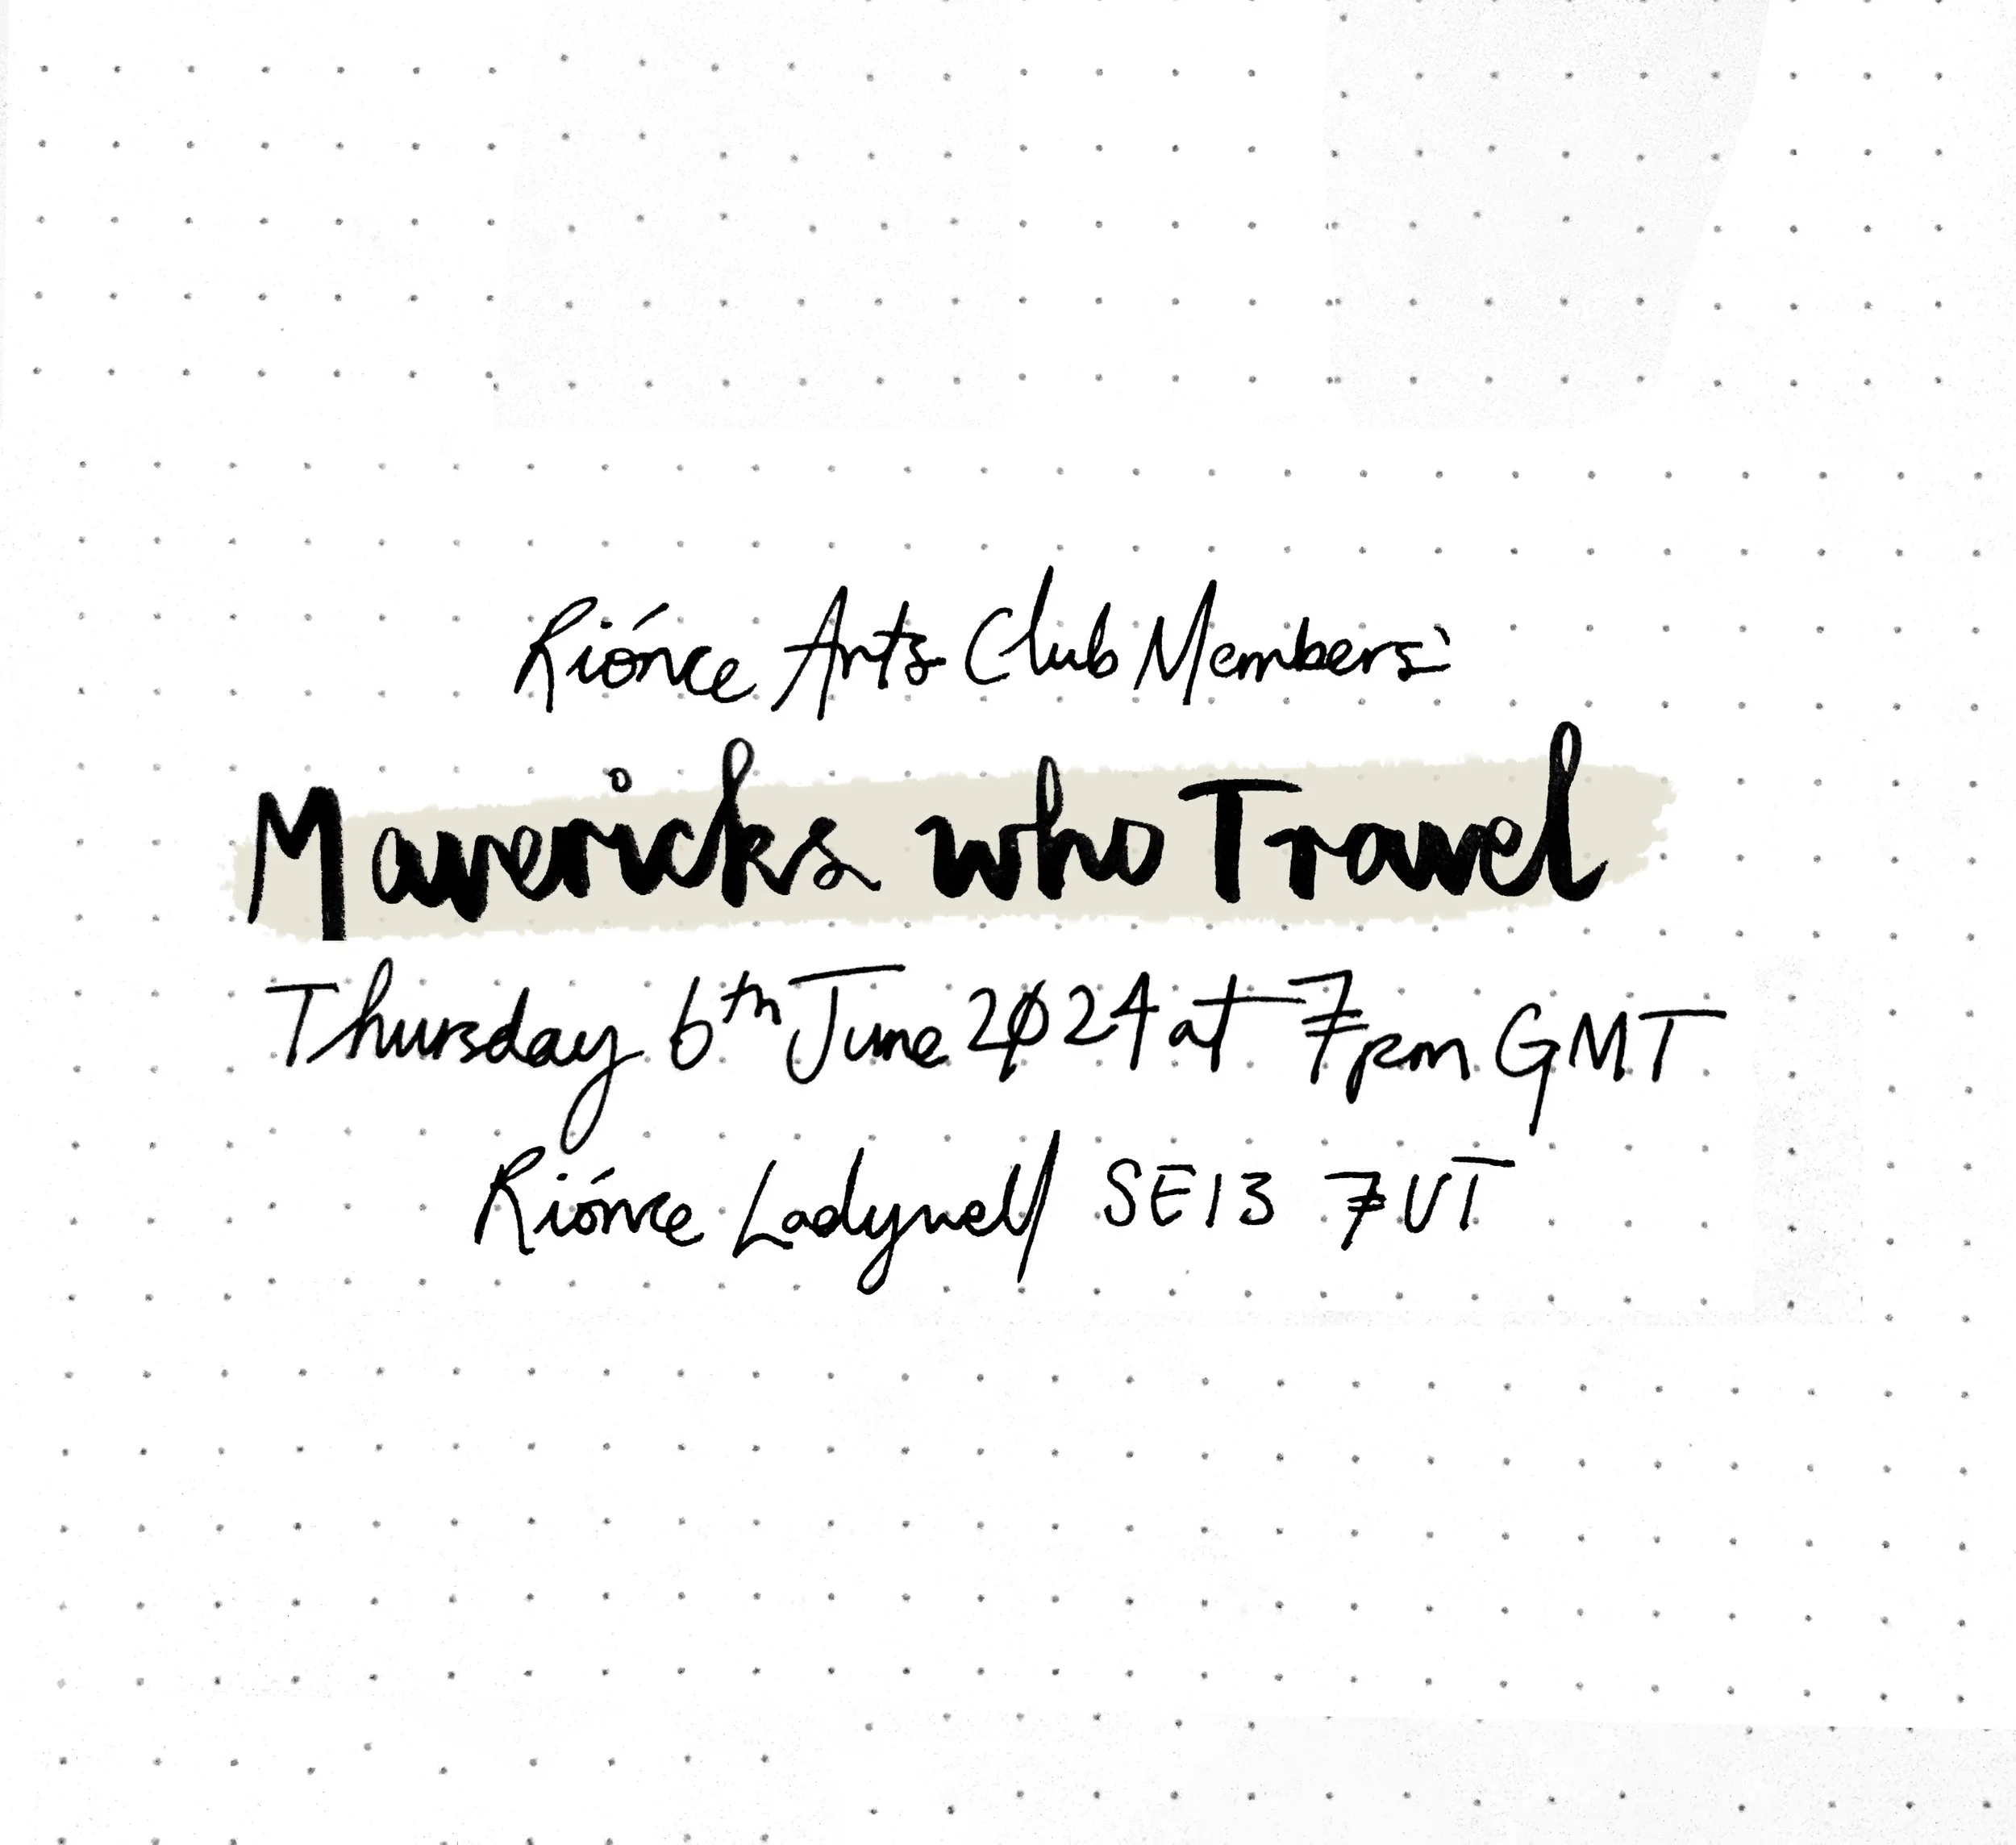 Riónce Arts Club Members'
Mavericks who Travel
Thursday 6th June 2024 at 7pm GMT
Riónce Ladywell SE13 7UT